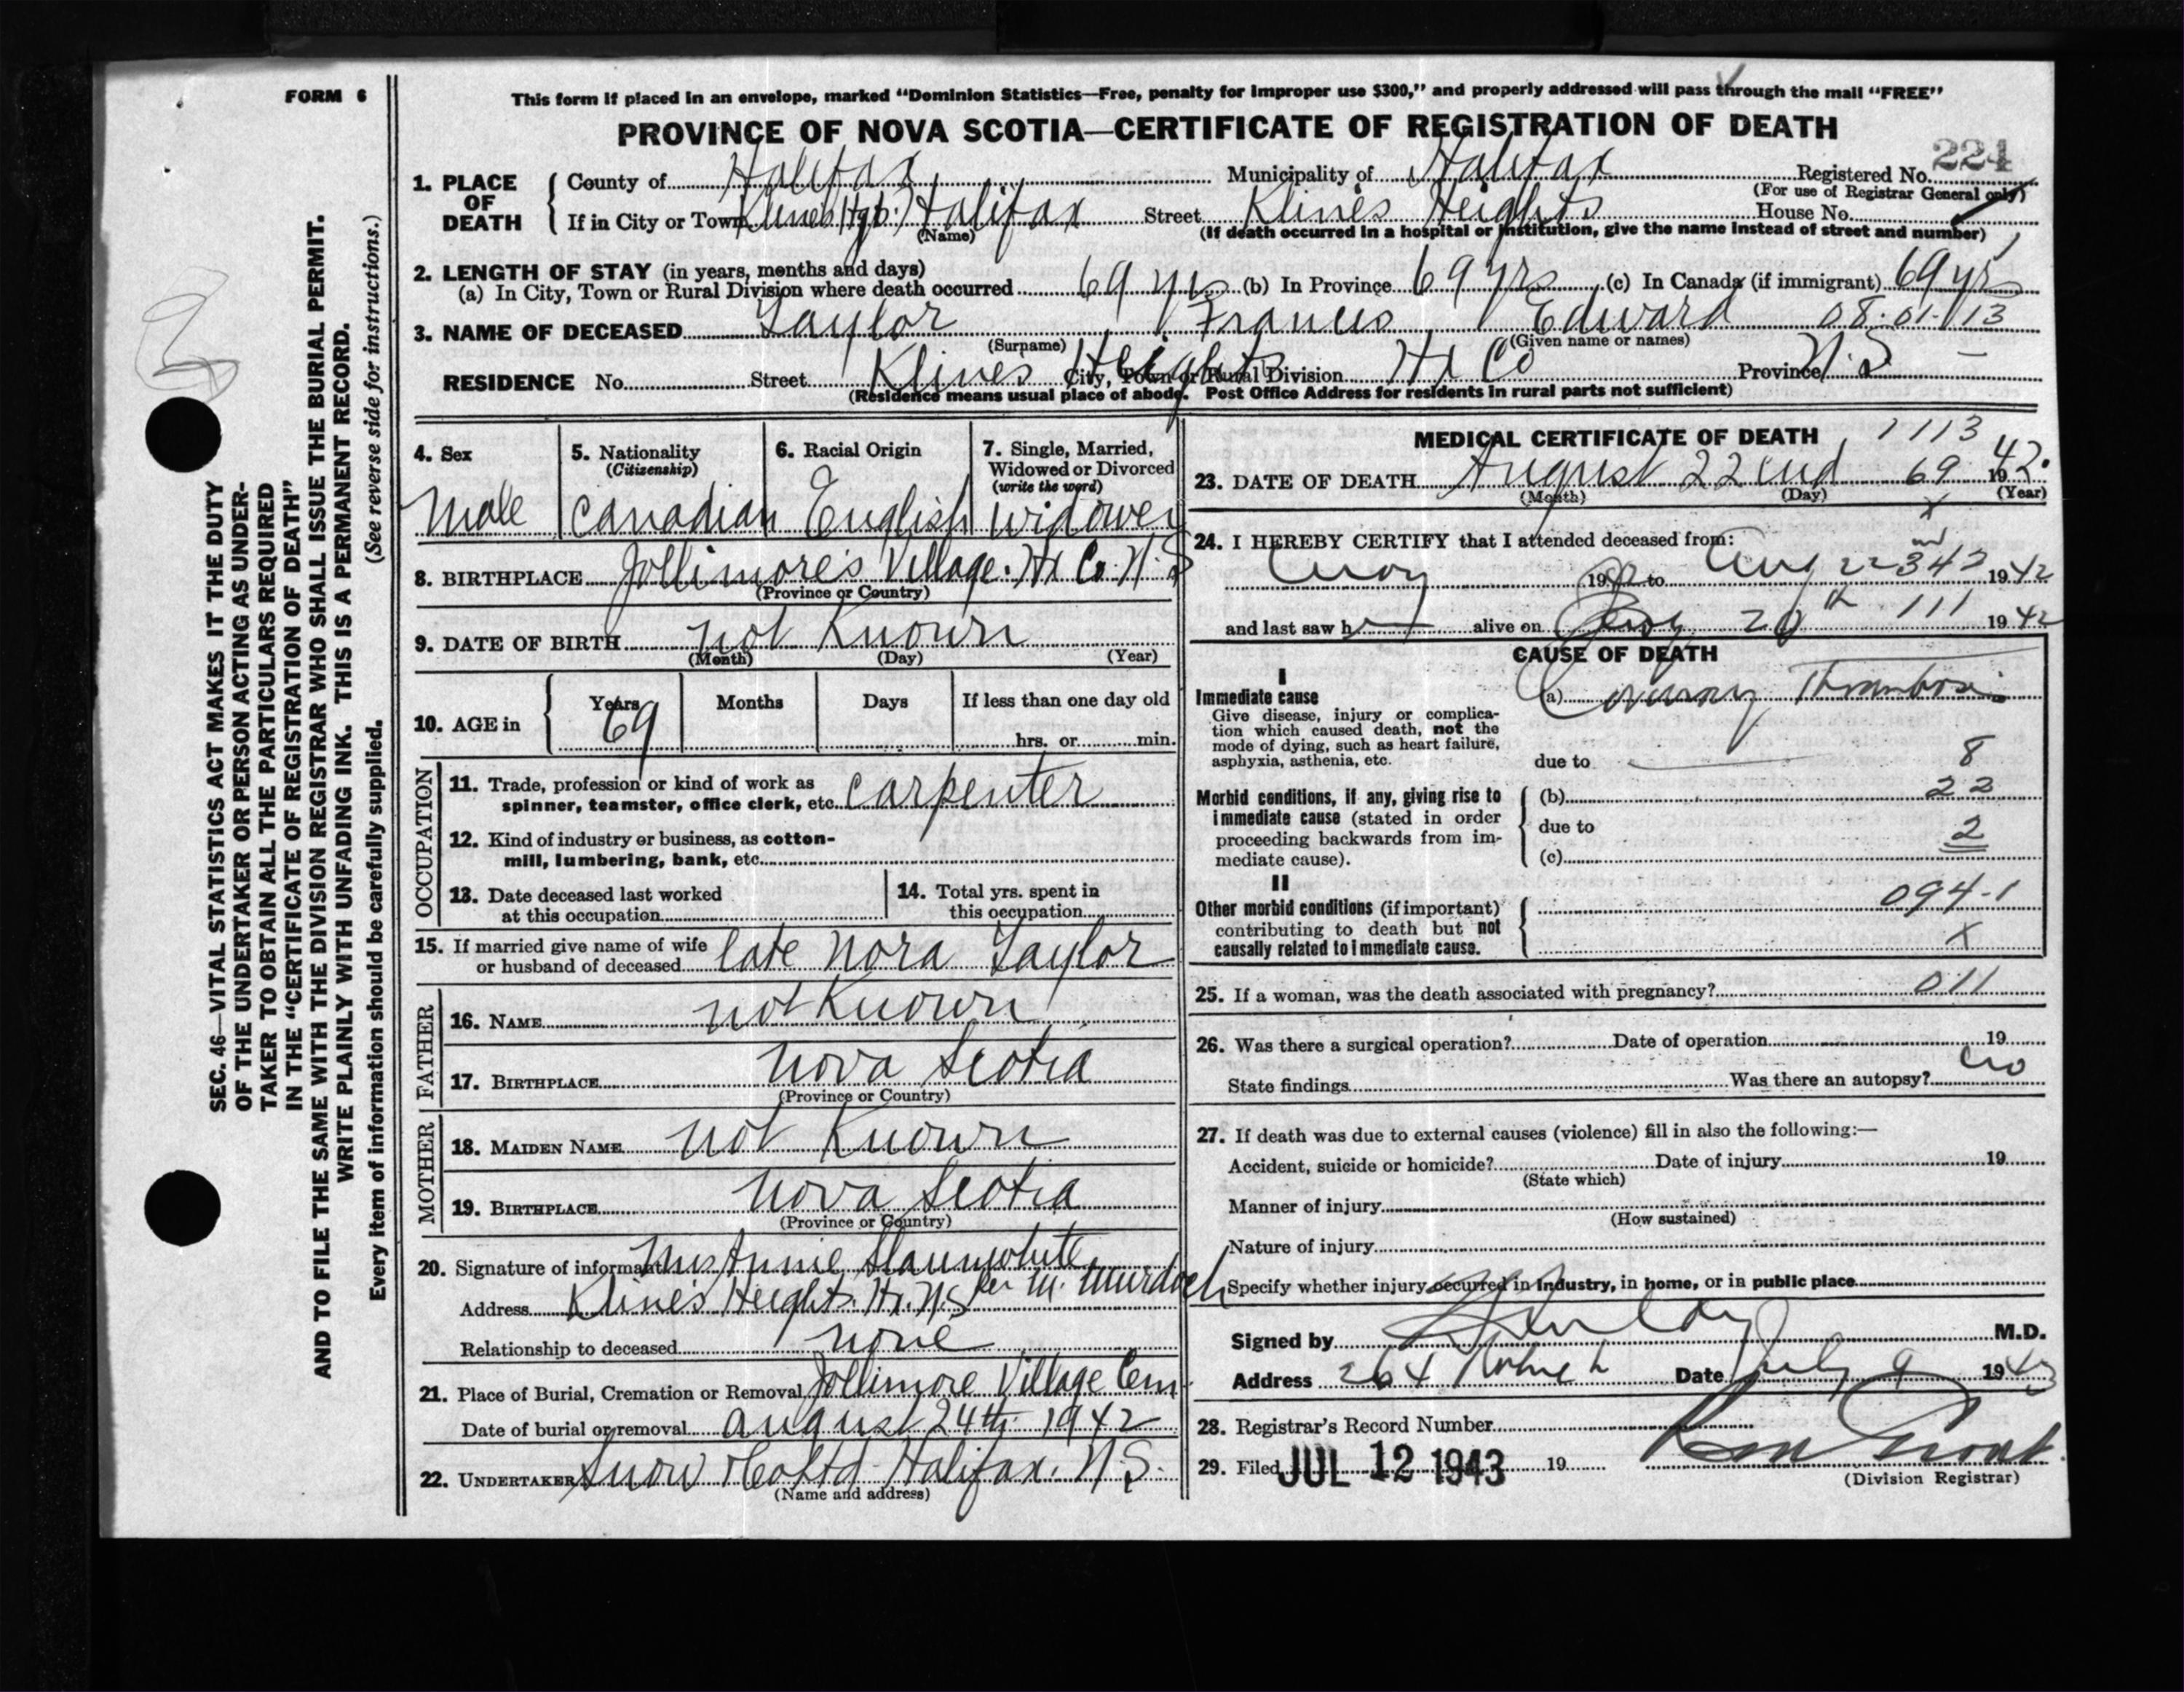 FORM 6
This form if placed in an envelope, marked "Dominion Statistics—Free, penalty for improper use $300," and properly addressed will pass through the mail "FREE"
PROVINCE OF NOVA SCOTIA—CERTIFICATE OF REGISTRATION OF DEATH
224
1. PLACE OF DEATH County of Halifax Municipality of Halifax Registered No.
(For use of Registrar General only)
If in City or Town Klines Hgts. Halifax Street Klines Heights House No.
(Name) (If death occurred in a hospital or institution, give the name instead of street and number)
2. LENGTH OF STAY (in years, months and days)
(a) In City, Town or Rural Division where death occurred 69 yrs (b) In Province 69 yrs (c) In Canada (if immigrant) 69 yrs
3. NAME OF DECEASED Taylor, Francis Edward 08.01.13
(Surname) (Given name or names)
RESIDENCE No. Street Klines Heights City, Town or Rural Division Hx Co Province N.S. —
(Residence means usual place of abode. Post Office Address for residents in rural parts not sufficient)
4. Sex Male
5. Nationality (Citizenship) Canadian
6. Racial Origin English
7. Single, Married, Widowed or Divorced (write the word) widower
8. BIRTHPLACE Jollimore's Village. Hx Co. N.S
(Province or Country)
9. DATE OF BIRTH not Known
(Month) (Day) (Year)
10. AGE in Years 69 Months Days If less than one day old
hrs. or min.
OCCUPATION
11. Trade, profession or kind of work as
spinner, teamster, office clerk, etc. carpenter
12. Kind of industry or business, as cotton-
mill, lumbering, bank, etc.
13. Date deceased last worked
at this occupation
14. Total yrs. spent in
this occupation
15. If married give name of wife
or husband of deceased late Nora Taylor
FATHER
16. NAME not Known
17. BIRTHPLACE Nova Scotia
(Province or Country)
MOTHER
18. MAIDEN NAME not Known
19. BIRTHPLACE Nova Scotia
(Province or Country)
20. Signature of informant Mrs Annie Slaunwhite
per M. Murdoch
Address Kline's Heights. Hx. N.S
Relationship to deceased none
21. Place of Burial, Cremation or Removal Jollimore Village Cem.
Date of burial or removal August 24th 1942
22. UNDERTAKER Snow & Co Ltd Halifax. N.S.
(Name and address)
MEDICAL CERTIFICATE OF DEATH 1113
23. DATE OF DEATH August 22nd 69 1942.
(Month) (Day) (Year)
x
24. I HEREBY CERTIFY that I attended deceased from:
19 to Aug 22nd 343 1942
and last saw h alive on 20th 111 1942
CAUSE OF DEATH
I
Immediate cause
Give disease, injury or complica-
tion which caused death, not the
mode of dying, such as heart failure,
asphyxia, asthenia, etc.
(a) Coronary Thrombosis
due to 8
Morbid conditions, if any, giving rise to
immediate cause (stated in order
proceeding backwards from im-
mediate cause).
(b) 22
due to 2
(c)
II
Other morbid conditions (if important)
contributing to death but not
causally related to immediate cause.
094-1
x
25. If a woman, was the death associated with pregnancy? 011
26. Was there a surgical operation? Date of operation 19
State findings Was there an autopsy? no
27. If death was due to external causes (violence) fill in also the following:—
Accident, suicide or homicide? Date of injury 19
(State which)
Manner of injury
(How sustained)
Nature of injury
Specify whether injury occurred in industry, in home, or in public place
Signed by M.D.
Address 264 Date July 9 1943
28. Registrar's Record Number
29. Filed JUL 12 1943 19
(Division Registrar)
SEC. 46—VITAL STATISTICS ACT MAKES IT THE DUTY
OF THE UNDERTAKER OR PERSON ACTING AS UNDER-
TAKER TO OBTAIN ALL THE PARTICULARS REQUIRED
IN THE "CERTIFICATE OF REGISTRATION OF DEATH"
AND TO FILE THE SAME WITH THE DIVISION REGISTRAR WHO SHALL ISSUE THE BURIAL PERMIT.
WRITE PLAINLY WITH UNFADING INK. THIS IS A PERMANENT RECORD.
Every item of information should be carefully supplied. (See reverse side for instructions.)